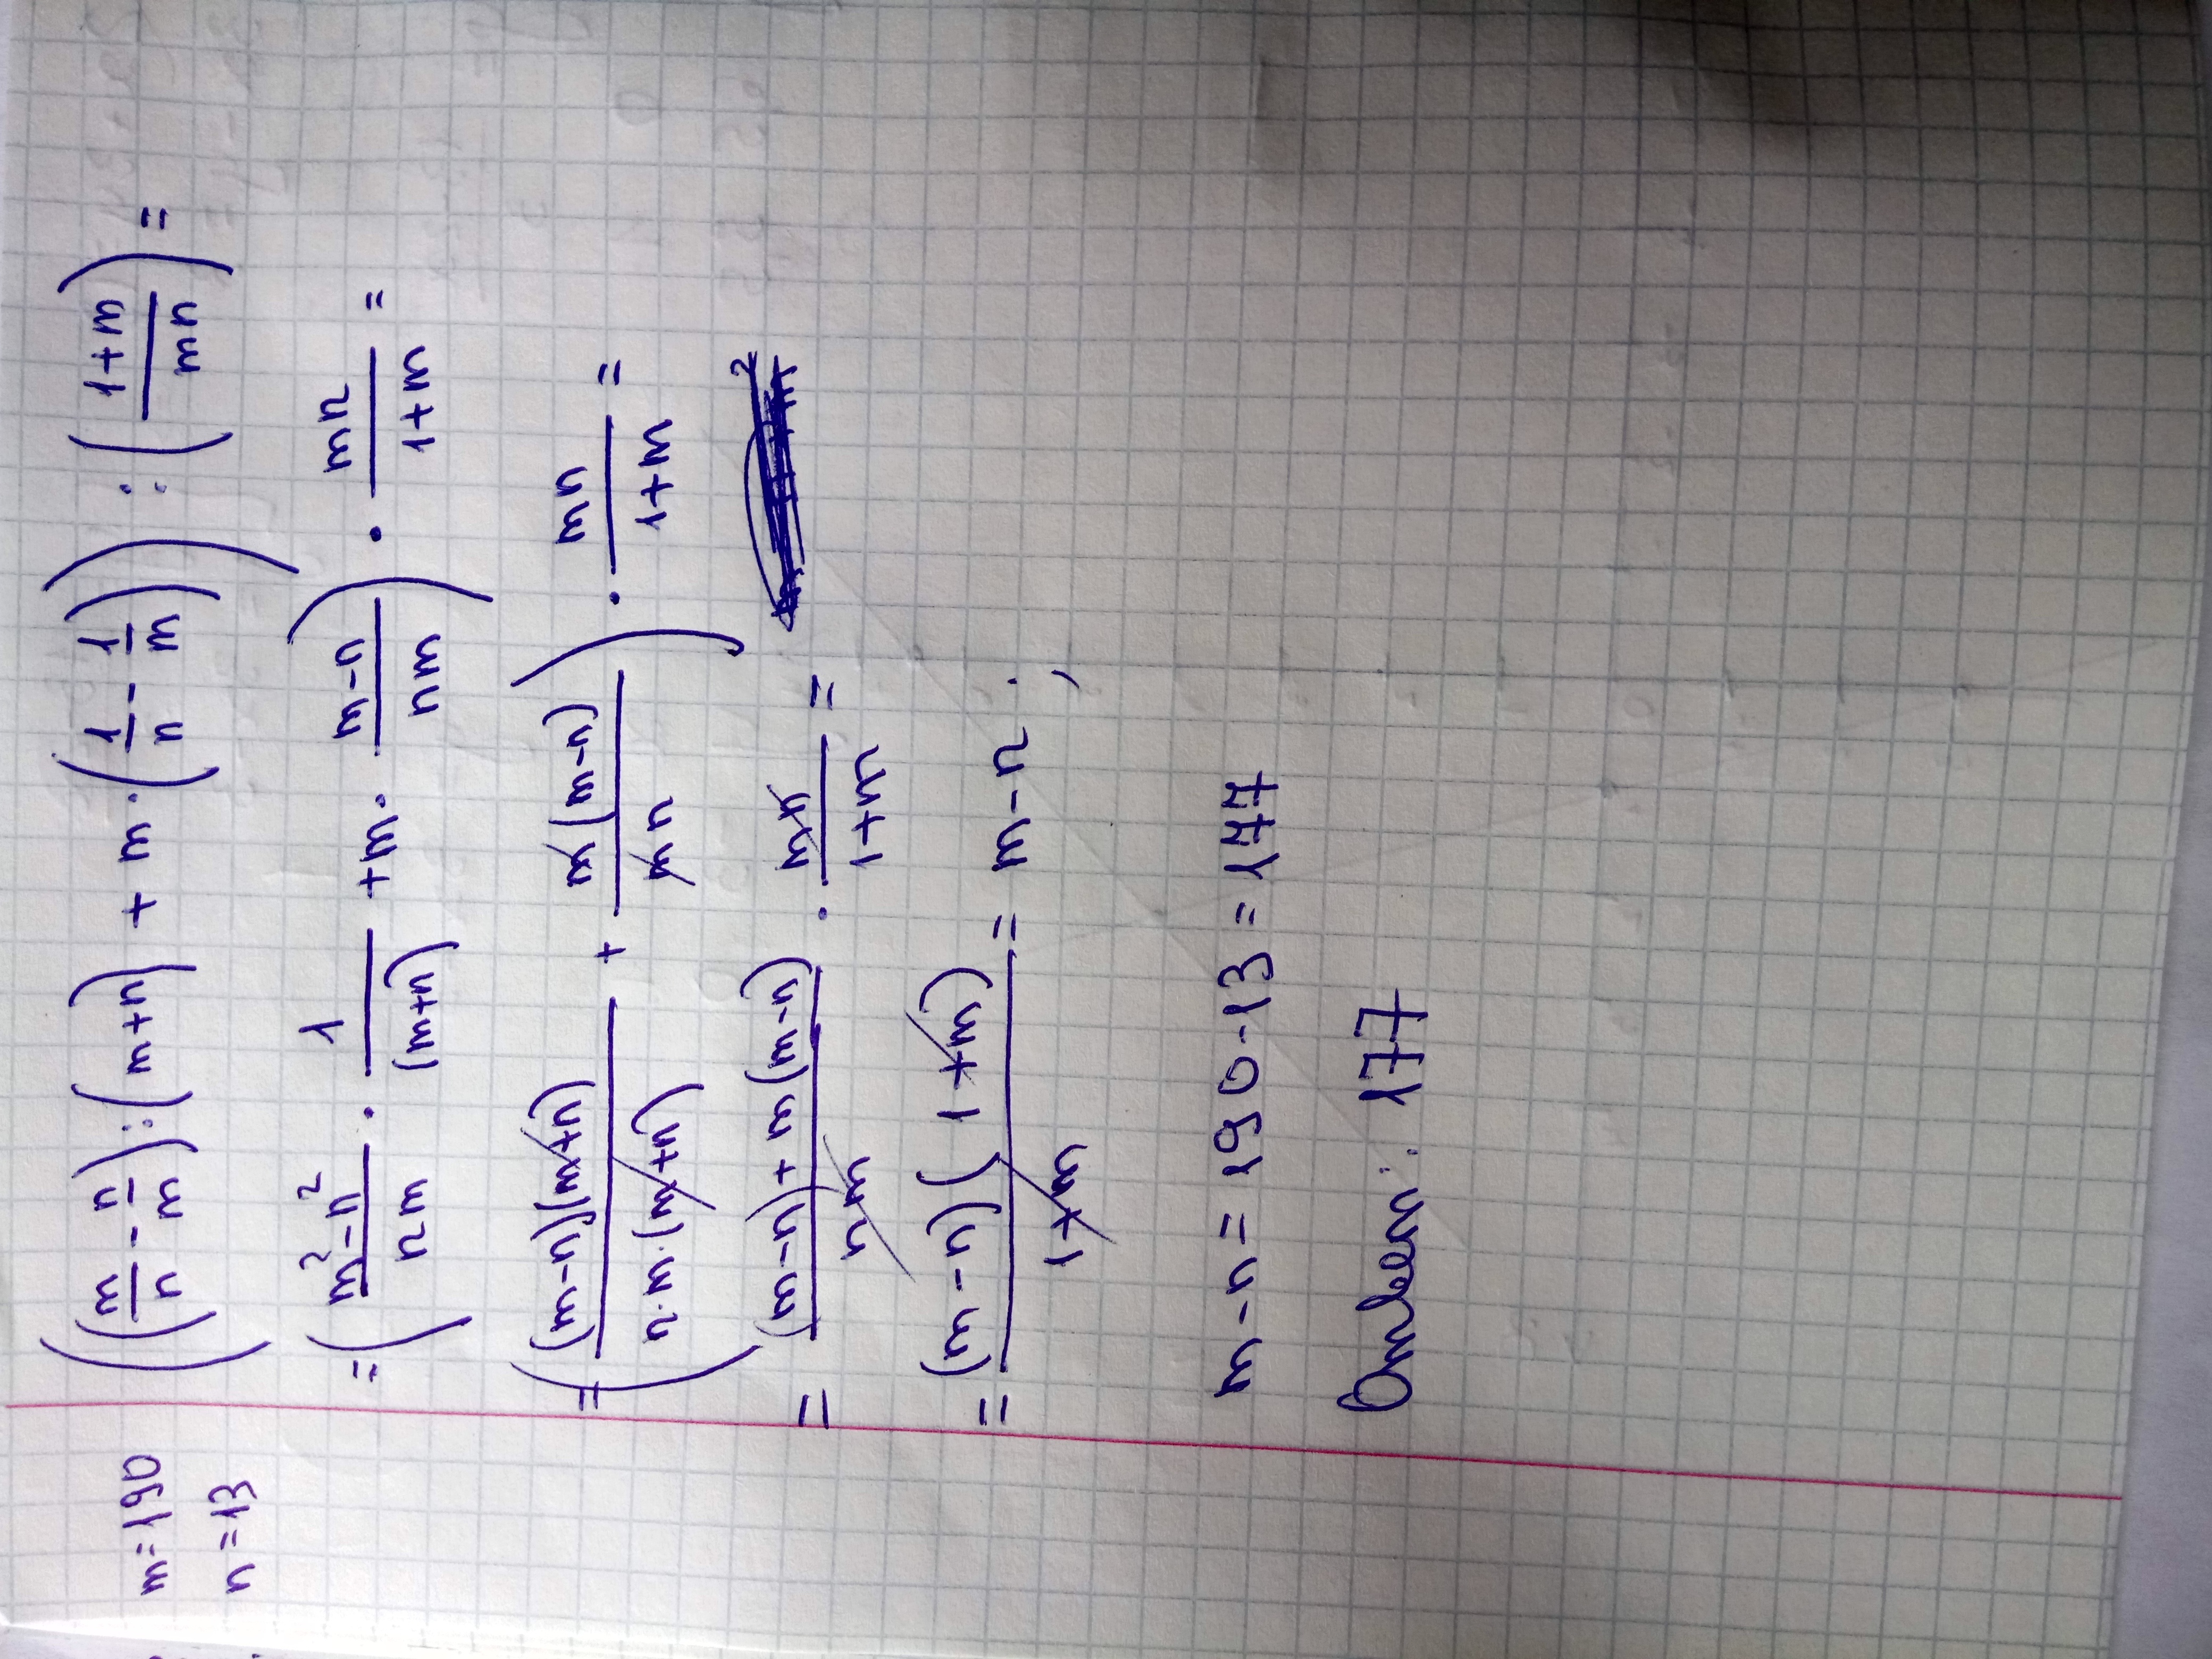 m=190
n=13
((m/n - n/m):(m+n) + m·(1/n - 1/m)) : ((1+m)/(mn)) =
= ((m²-n²)/(nm) · 1/(m+n) + m · (m-n)/(nm)) · (mn)/(1+m) =
= ((m-n)(m+n)/(n·m·(m+n)) + m(m-n)/(mn)) · (mn)/(1+m) =
= ((m-n)+m(m-n))/(nm) · (mn)/(1+m) =
= (m-n)(1+m)/(1+m) = m-n ;
m-n=190-13=177
Ответ: 177